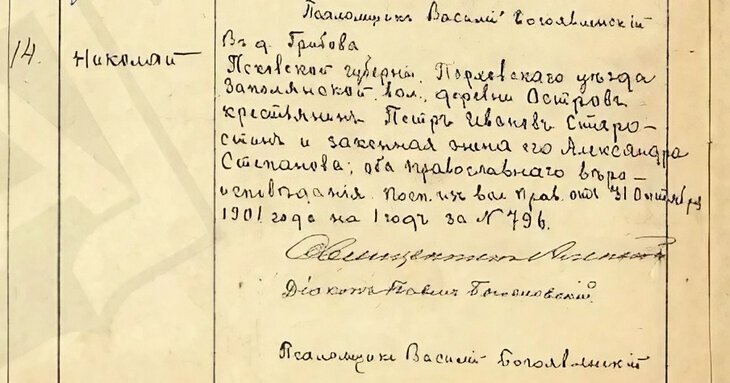 Псаломщикъ Василій Богоявленскій
14. Николай
Въ д. Грибова
Псковской губерніи, Порховскаго уѣзда
Заполянской вол., деревни Островъ
крестьянинъ Петръ Ивановъ Старо-
стинъ и законная жена его Александра
Степанова; оба православнаго вѣро-
исповѣданія. Посп. их вол. прав. отъ 31 Октября
1901 года на 1 годъ за N 796.
Священникъ
Діаконъ Павелъ
Псаломщикъ Василій Богоявленскій